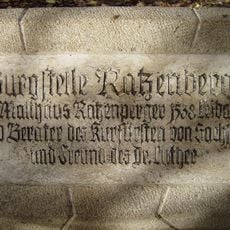 Burgstelle Ratzenberg
Matthäus Ratzenperger 1538 Leibarzt
Berater des Kurfürsten von Sach
und Freund des Dr. Luther